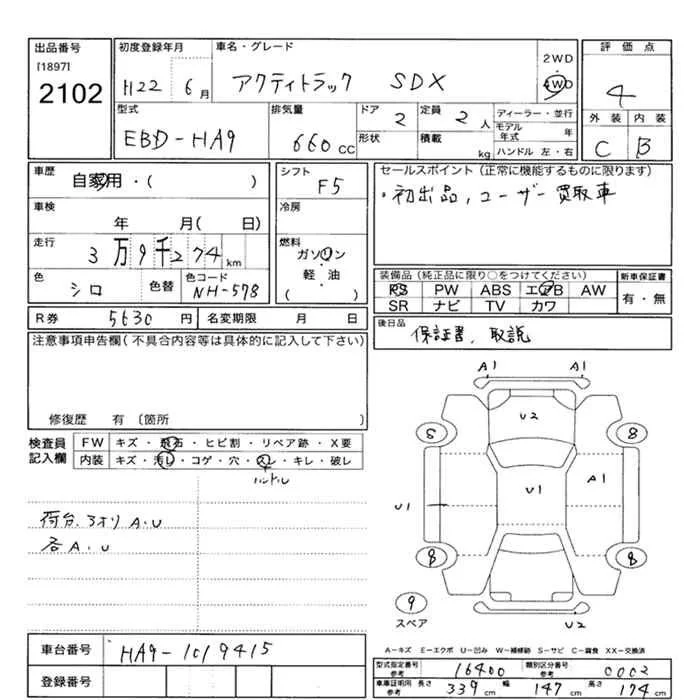 出品番号 初度登録年月 車名・グレード 評価点
[1897] 2WD
2102 H22 6月 アクティトラック SDX 4WD 4
型式 排気量 ドア 2 定員 2人 ディーラー・並行 外装 内装
EBD-HA9 660cc 形状 積載 kg モデル年式 年 C B
ハンドル 左・右
車歴 自家用・( ) シフト F5 セールスポイント(正常に機能するものに限ります)
・初出品,ユーザー買取車
車検 年 月( 日) 冷房
走行 3万9千274km 燃料 ガソリン 軽・油 ( )
色 シロ 色替 色コード NH-578
装備品(純正品に限り○をつけてください) 新車保証書
PS PW ABS エアB AW 有・無
SR ナビ TV カワ
R券 5630円 名変期限 月 日
後日品 保証書,取説
注意事項申告欄(不具合内容等は具体的に記入して下さい)
修復歴 有(箇所 )
検査員記入欄 FW キズ・飛石・ヒビ割・リペア跡・X要
内装 キズ・汚レ・コゲ・穴・スレ・キレ・破レ
ハンドル
荷台,3オリ A.U
各A.U
A1 A1
U2
S 8
U1 U1 A1
8 8
9
スペア
U2
車台番号 HA9-1019415
登録番号
A-キズ E-エクボ U-凹み W-補修跡 S-サビ C-腐食 XX-交換済
型式指定番号 参考 16400 類別区分番号 参考 0002
車庫証明用 参考 長さ 339cm 幅 147cm 高さ 174cm